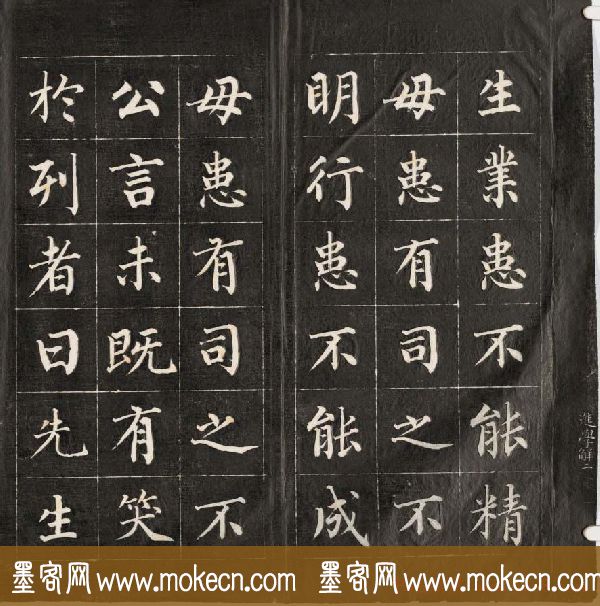 生業患不能精
毋患有司之不
明行患不能成
毋患有司之不
公言未既有笑
於列者曰先生
進學解二
墨客网 www.mokecn.com 墨客网 www.mokecn.com